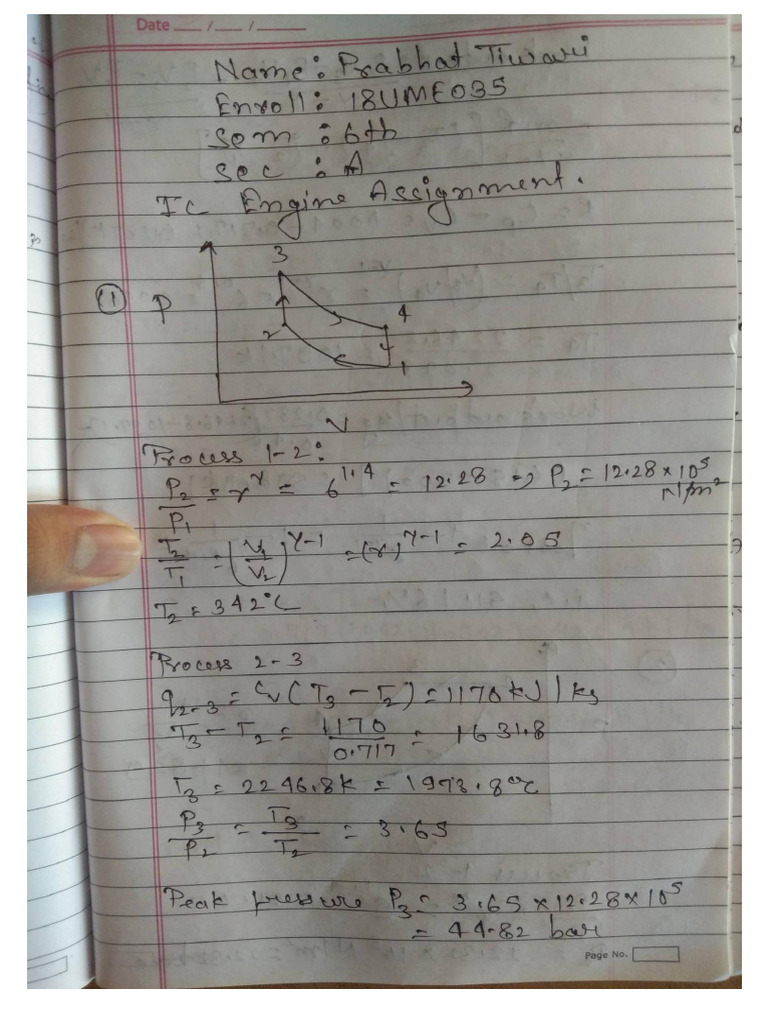 Date ___ / ___ / ______
Name: Prabhat Tiwari
Enroll: 18UME035
Sem : 6th
Sec : A
IC Engine Assignment.
3
(1) P
4
2
1
V
Process 1-2:
P₂/P₁ = r^γ = 6^1.4 = 12.28 => P₂ = 12.28 × 10⁵ N/m²
T₂/T₁ = (V₁/V₂)^γ-1 = (r)^γ-1 = 2.05
T₂ = 342°C
Process 2-3
q₂₋₃ = Cv (T₃ - T₂) = 1170 kJ/kg
T₃ - T₂ = 1170/0.717 = 1631.8
T₃ = 2246.8k = 1973.8°C
P₃/P₂ = T₃/T₂ = 3.65
Peak pressure P₃ = 3.65 × 12.28 × 10⁵
= 44.82 bar
Page No.